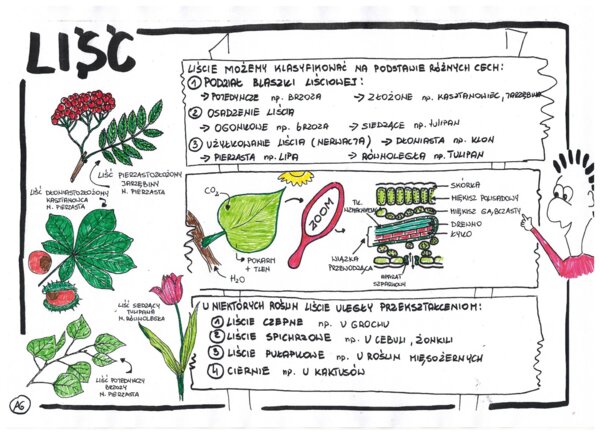 LIŚĆ
LIŚCIE MOŻEMY KLASYFIKOWAĆ NA PODSTAWIE RÓŻNYCH CECH:
① PODZIAŁ BLASZKI LIŚCIOWEJ:
→ POJEDYNCZE np. BRZOZA → ZŁOŻONE np. KASZTANOWIEC, JARZĘBINA
② OSADZENIE LIŚCIA
→ OGONKOWE np. BRZOZA → SIEDZĄCE np. TULIPAN
③ UŻYŁKOWANIE LIŚCIA (NERWACJA) → DŁONIASTA np. KLON
→ PIERZASTA np. LIPA → RÓWNOLEGŁA np. TULIPAN
LIŚĆ PIERZASTOZŁOŻONY
JARZĘBINY
N. PIERZASTA
LIŚĆ DŁONIASTOZŁOŻONY
KASZTANOWCA
N. PIERZASTA
LIŚĆ SIEDZĄCY
TULIPANA
N. RÓWNOLEGŁA
LIŚĆ POJEDYNCZY
BRZOZY
N. PIERZASTA
CO₂
POKARM
+ TLEN
H₂O
ZOOM
TK.
WZMACNIAJĄCA
WIĄZKA
PRZEWODZĄCA
APARAT
SZPARKOWY
SKÓRKA
MIĘKISZ PALISADOWY
MIĘKISZ GĄBCZASTY
DREWNO
ŁYKO
U NIEKTÓRYCH ROŚLIN LIŚCIE ULEGŁY PRZEKSZTAŁCENIOM:
① LIŚCIE CZEPNE np. U GROCHU
② LIŚCIE SPICHRZOWE np. U CEBULI, ŻONKILI
③ LIŚCIE PUŁAPKOWE np. U ROŚLIN MIĘSOŻERNYCH
④ CIERNIE np. U KAKTUSÓW
AG